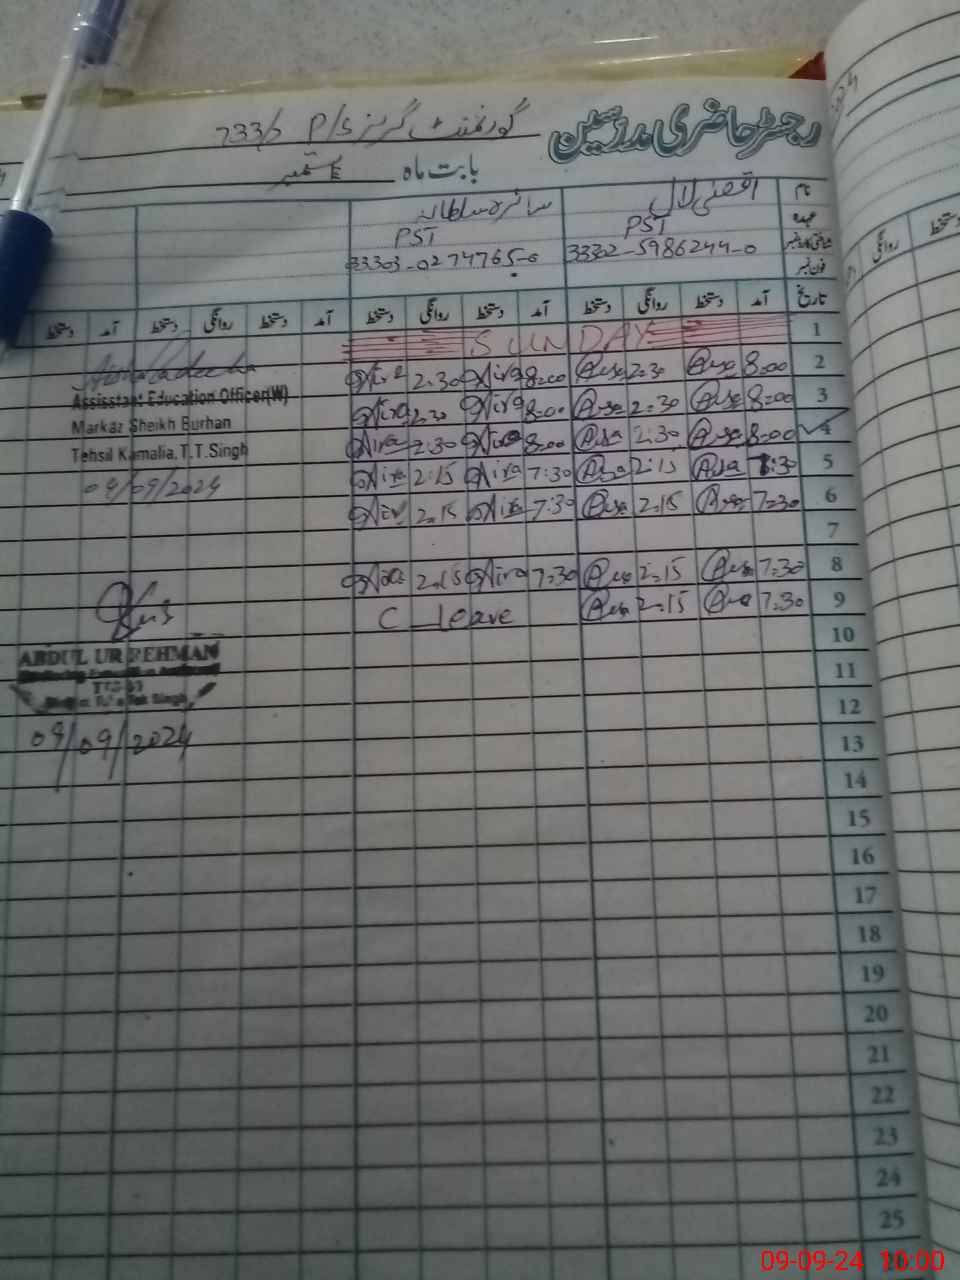 رجسٹر حاضری مدرسین گورنمنٹ گرلز P/S 733/
بابت ماہ ستمبر
نام اقصیٰ لال سائرہ سلطانہ
عہدہ PST PST
شناختی کارڈ نمبر 33302-5986244-0 33303-0274765-0
فون نمبر
تاریخ آمد دستخط روانگی دستخط آمد دستخط روانگی دستخط آمد دستخط روانگی دستخط آمد دستخط
1 SUNDAY
2 8:00 2:30 8:00 2:30
3 8:00 2:30 8:00 2:30
4 8:00 2:30 8:00 2:30
5 7:30 2:15 7:30 2:15
6 7:30 2:15 7:30 2:15
7
8 7:30 2:15 7:30 2:15
9 7:30 2:15 C leave
10
11
12
13
14
15
16
17
18
19
20
21
22
23
24
25
Assisstant Education Officer(W)
Markaz Sheikh Burhan
Tehsil Kamalia, T.T.Singh
04/09/2024
ABDUL UR REHMAN
09/09/2024
دستخط
روانگی
09-09-24 10:00